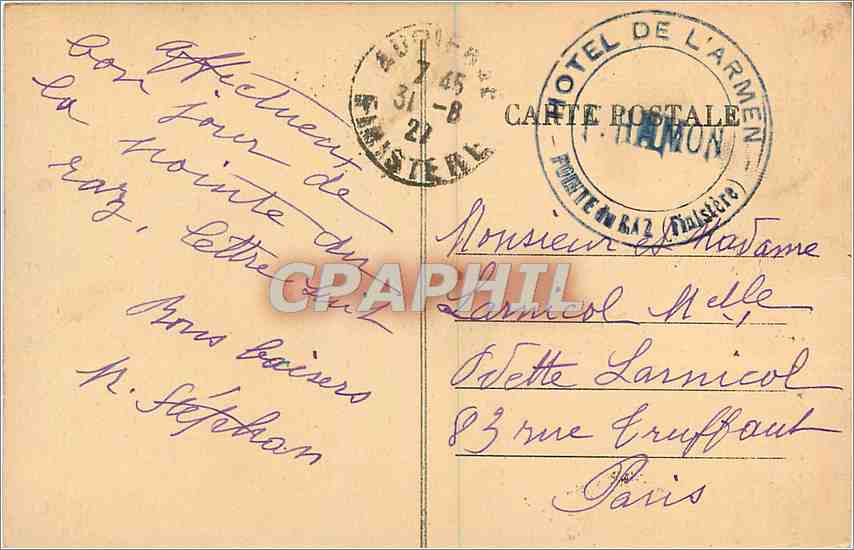 affectueux
bon jour de
la pointe du
raz, lettre suit
Bons baisers
N. Stéphan
AUDIERNE
7 45
31 -8
27
FINISTÈRE
HOTEL DE L'ARMEN
HAMON
POINTE du RAZ (Finistère)
CARTE POSTALE
CPARAMA
Monsieur et Madame
Larnicol Melle
Odette Larnicol
83 rue Truffaut
Paris